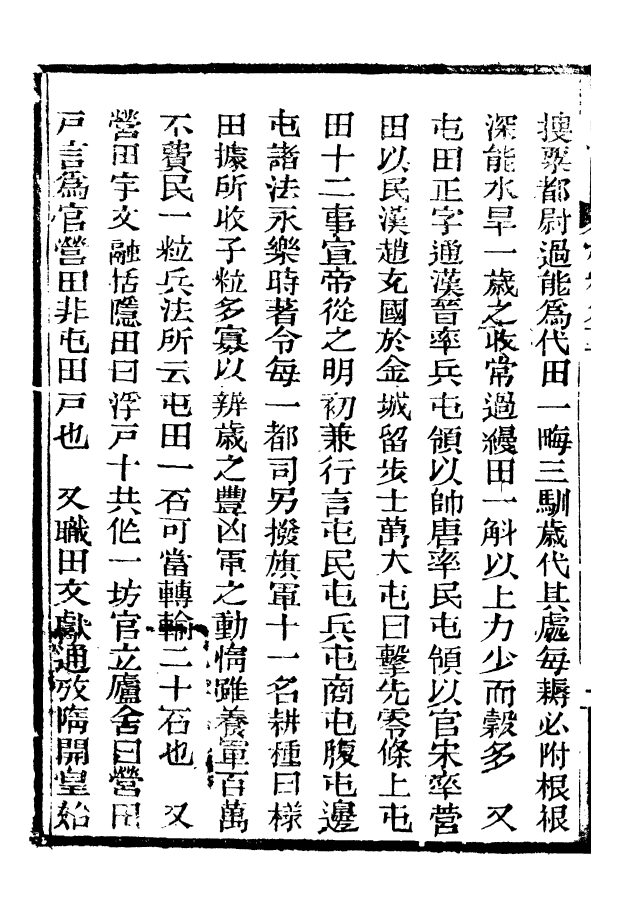 搜粟都尉過能爲代田一畮三甽歲代其處每耨必附根根
深能水旱一歲之收常過縵田一斛以上力少而穀多　又
屯田正字通漢晉率兵屯領以帥唐率民屯領以官宋率營
田以民漢趙充國於金城留步士萬大屯日擊先零條上屯
田十二事宣帝從之明初兼行言屯民屯兵屯商屯腹屯邊
屯諸法永樂時著令每一都司另撥旗軍十一名耕種曰樣
田據所收子粒多寡以辨歲之豐凶軍之動惰雖養軍百萬
不費民一粒兵法所云屯田一石可當轉輸二十石也　又
營田宇文融括隱田曰浮戸十共作一坊官立廬舍曰營田
戸言爲官營田非屯田戸也　又職田文獻通攷隋開皇始